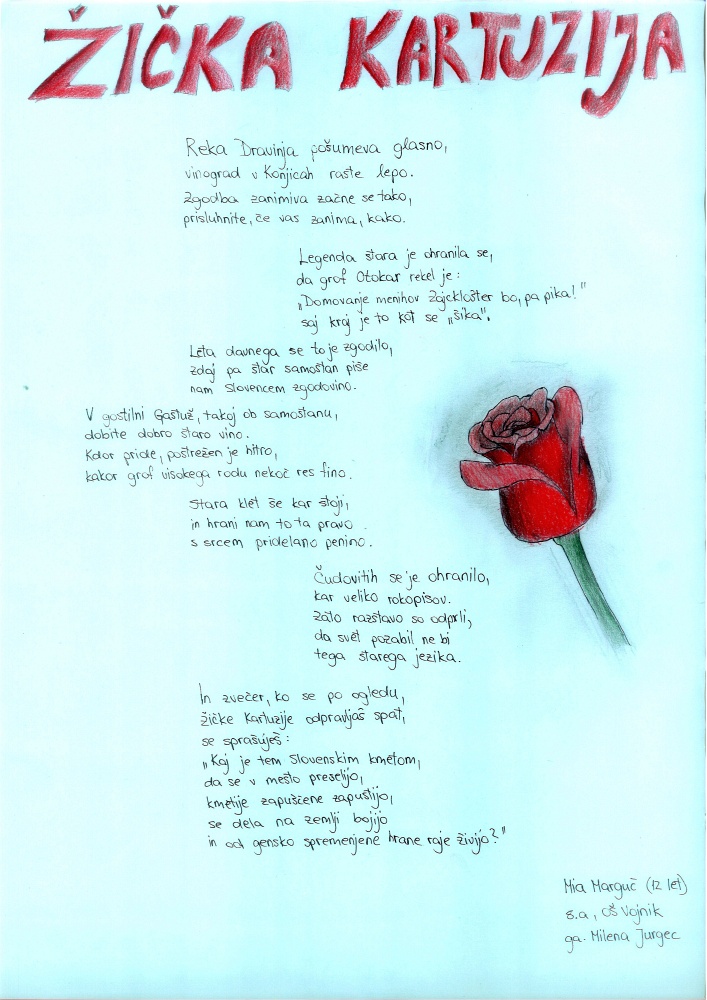 ŽIČKA KARTUZIJA
Reka Dravinja pošumeva glasno,
vinograd v Konjicah raste lepo.
Zgodba zanimiva začne se tako,
prisluhnite, če vas zanima, kako.
Legenda stara je ohranila se,
da grof Otokar rekel je:
„Domovanje menihov Zajcklošter bo, pa pika!"
saj kraj je to kot se „šika".
Leta davnega se to je zgodilo,
zdaj pa star samostan piše
nam Slovencem zgodovino.
V gostilni Gastuž, takoj ob samostanu,
dobite dobro staro vino.
Kdor pride, postrežen je hitro,
kakor grof visokega rodu nekoč res fino.
Stara klet še kar stoji,
in hrani nam to ta pravo
s srcem pridelano penino.
Čudovitih se je ohranilo,
kar veliko rokopisov.
Zato razstavo so odprli,
da svet pozabil ne bi
tega starega jezika.
In zvečer, ko se po ogledu,
žičke Kartuzije odpravljaš spat,
se sprašuješ:
„Kaj je tem Slovenskim kmetom,
da se v mesto preselijo,
kmetije zapuščene zapustijo,
se dela na zemlji bojijo
in od gensko spremenjene hrane raje živijo?"
Mia Marguč (12 let)
8.a, OŠ Vojnik
ga. Milena Jurgec